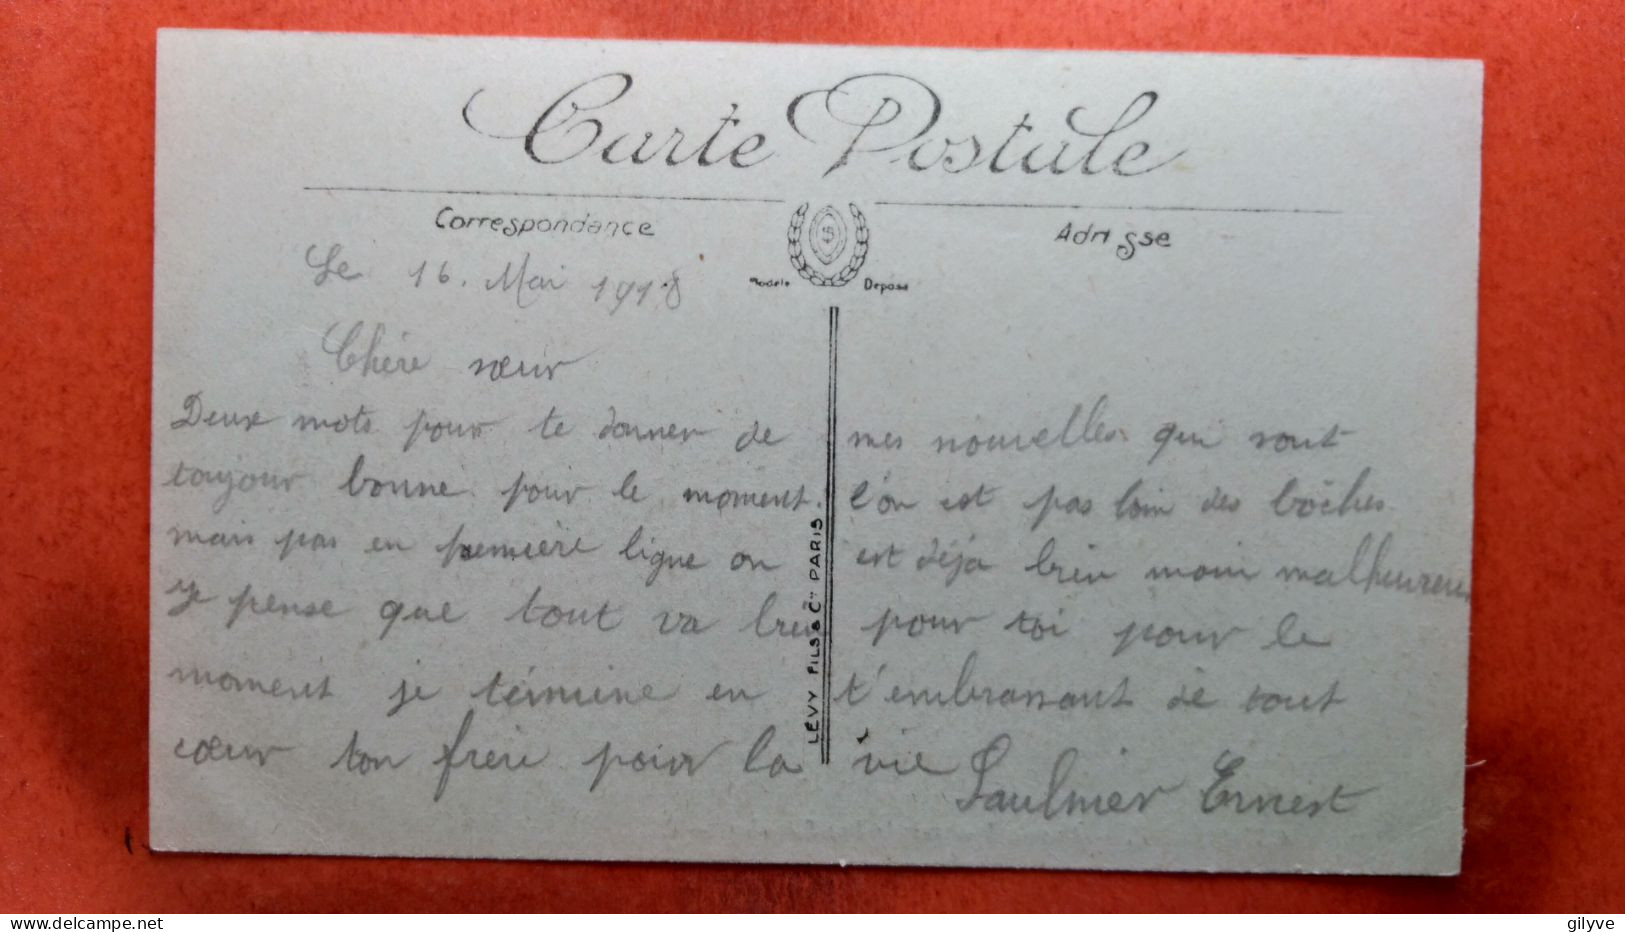 Carte Postale
Correspondance
Adresse
Modèle Déposé
Le 16. Mai 1918
Chère sœur
Deux mots pour te donner de mes nouvelles qui sont
toujour bonne pour le moment. l'on est pas loin des bôches
mais pas en première ligne on est déjà bien moin malheureux
je pense que tout va bien pour toi pour le
moment je términe en t'embrassant de tout
cœur ton frère pour la vie
Saulnier Ernest
LÉVY FILS & Cie PARIS
gilyve